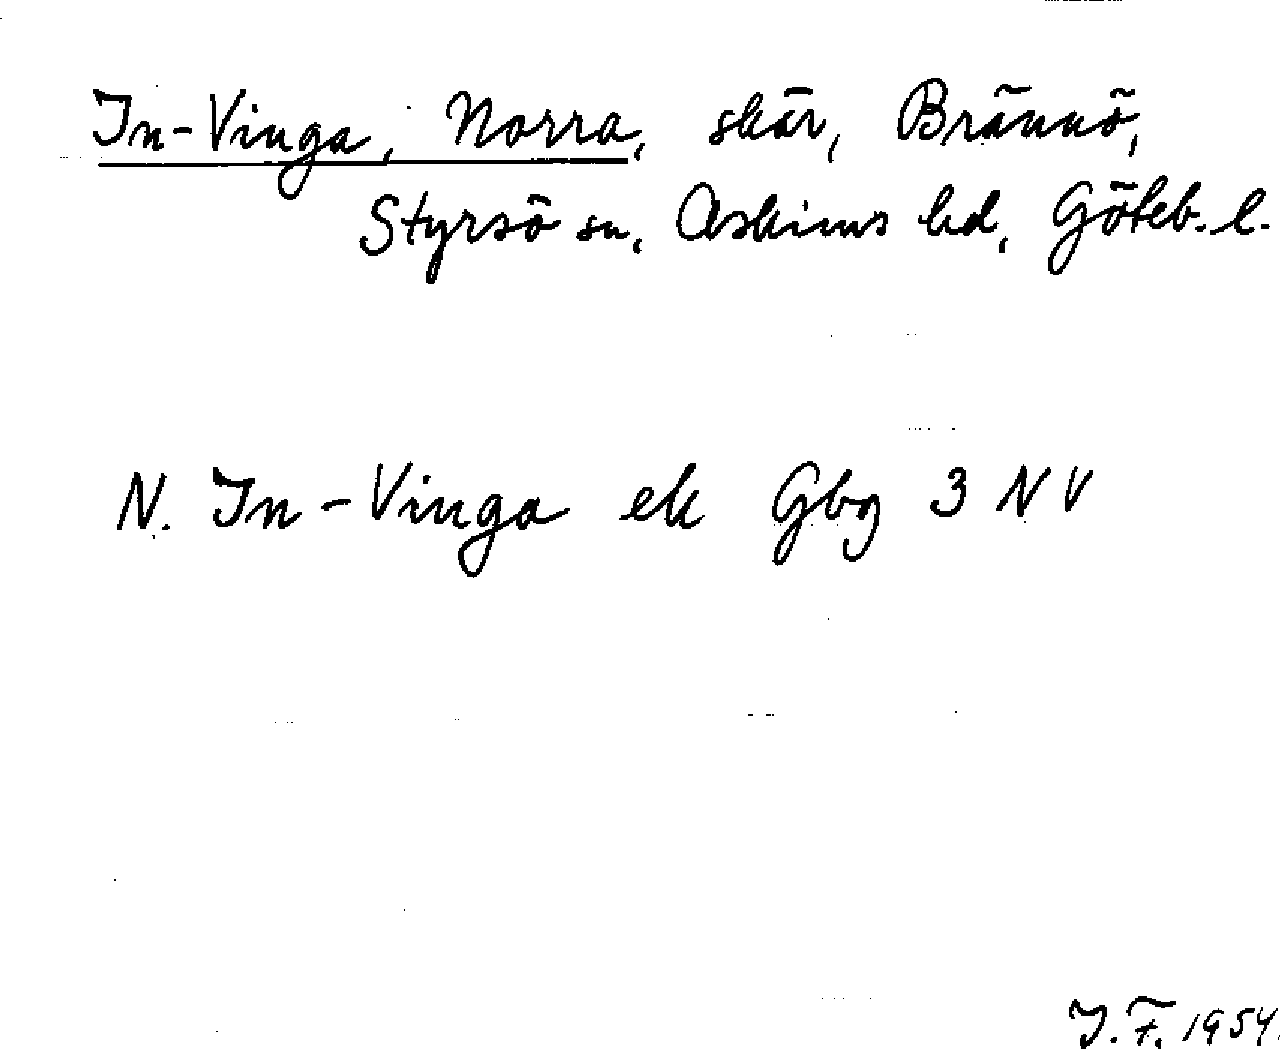 In-Vinga, Norra, skär, Brännö,
Styrsö sn, Askims hd, Göteb. l.
N. In-Vinga ek Gbg 3 NV
I. F. 1954.